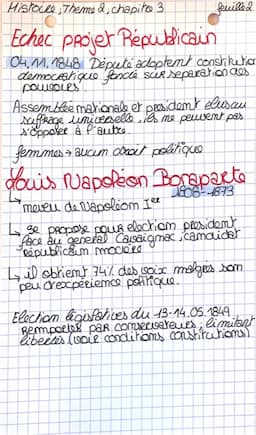 Histoire, Thème 2, chapitre 3 feuille 2
Echec projet Républicain
04.11.1848 Députés adoptent constitution
démocratique fondé sur séparation des
pouvoirs.
Assemblée nationale et président élus au
suffrage universelle, ils ne peuvent pas
s'opposer à l'autre.
femmes → aucun droit politique
Louis Napoléon Bonaparte
1808-1873
↳ neveu de Napoléon Ier
↳ se propose pour election président
face au général Cavaignac, candidat
républicain modéré
↳ il obtient 74% des voix malgrès son
peu d'expérience politique.
Election législatives du 13-14.05.1849
Remportés par conservateurs, limitant
libertés (voir conditions constitutions)